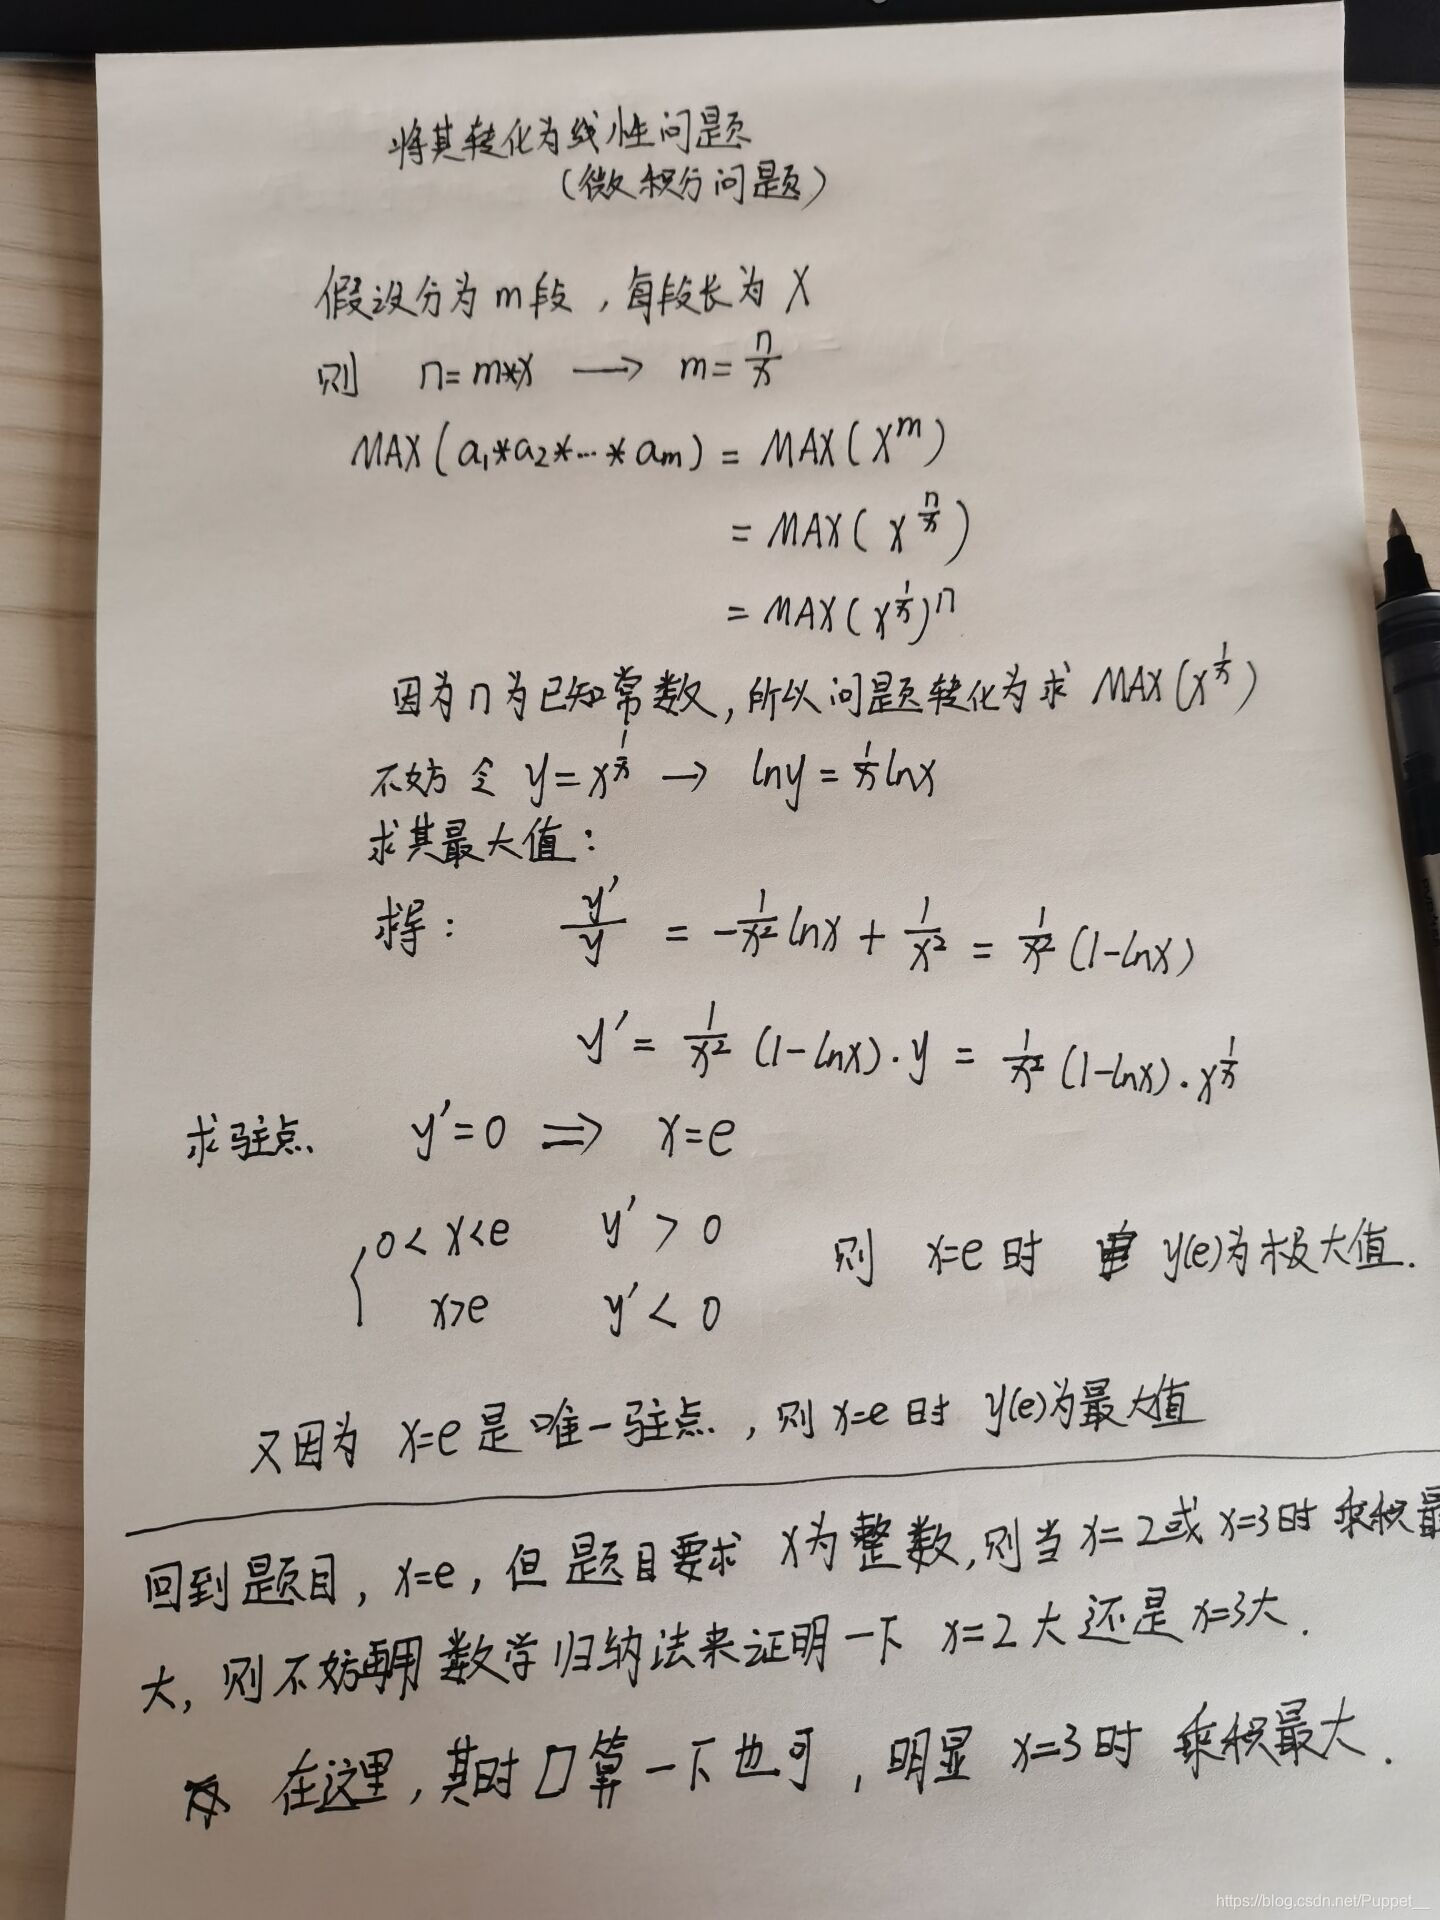 将其转化为线性问题
(微积分问题)
假设分为m段,每段长为X
则 n=m*x → m=n/x
MAX(a₁*a₂*…*aₘ) = MAX(X^m)
= MAX(x^(n/x))
= MAX(x^(1/x))^n
因为n为已知常数,所以问题转化为求 MAX(x^(1/x))
不妨令 y=x^(1/x) → lny=1/x lnx
求其最大值:
求导: y'/y = -1/x² lnx + 1/x² = 1/x² (1-lnx)
y' = 1/x² (1-lnx)·y = 1/x² (1-lnx)·x^(1/x)
求驻点. y'=0 ⇒ x=e
{ 0<x<e y'>0 则 x=e时 y(e)为极大值.
x>e y'<0
又因为 x=e是唯一驻点.,则x=e时 y(e)为最大值
回到题目,x=e,但题目要求 x为整数,则当x=2或x=3时乘积最
大,则不妨再用数学归纳法来证明一下 x=2大还是x=3大.
在这里,其时口算一下也可,明显 x=3时 乘积最大.
https://blog.csdn.net/Puppet__